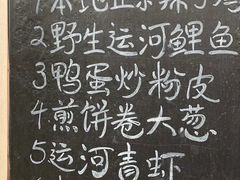 2野生运河鲤鱼
3鸭蛋炒粉皮
4煎饼卷大葱
5运河青虾